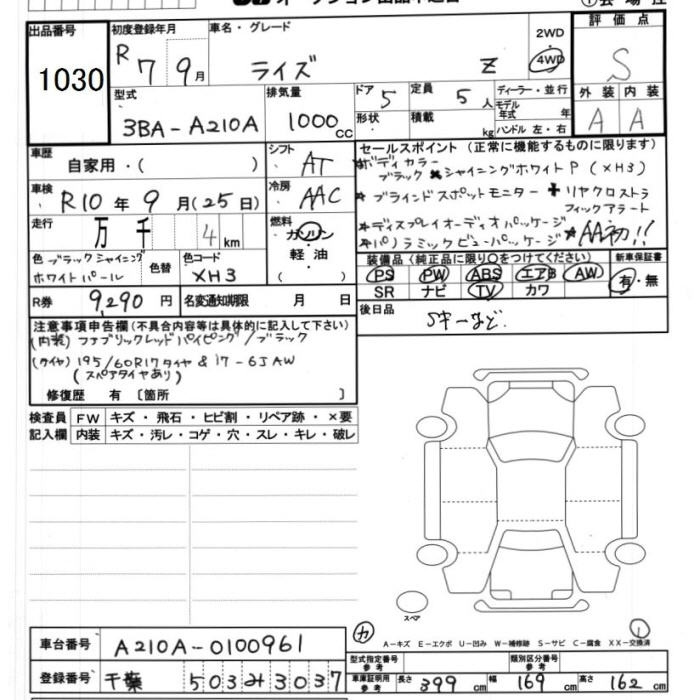 出品番号
1030
初度登録年月
R 7 9月
車名・グレード
ライズ Z
2WD
4WD
評価点
S
外装 内装
A A
型式
3BA-A210A
排気量
1000cc
ドア 5
形状
定員 5人
積載 kg
ディーラー・並行
モデル年式 年
ハンドル 左・右
車歴
自家用・( )
シフト
AT
車検
R10年9月(25日)
冷房
AAC
走行
万 千 4 km
燃料
ガソリン・軽油・( )
色 ブラックシャイニングホワイトパール
色替
色コード
XH3
R券 9,290円
名変通知期限 月 日
セールスポイント (正常に機能するものに限ります)
*ボディカラー
ブラック*シャイニングホワイトP (XH3)
*ブラインドスポットモニター + リヤクロストラフィックアラート
*ディスプレイオーディオパッケージ
*パノラミックビューパッケージ *AA初!!
装備品 (純正品に限り○をつけてください)
PS PW ABS エアB AW
SR ナビ TV カワ
新車保証書
有・無
後日品
Sキーなど
注意事項申告欄(不具合内容等は具体的に記入して下さい)
(内装) ファブリックレッドパイピング/ブラック
(タイヤ) 195/60R17タイヤ & 17-6JAW
(スペアタイヤあり)
修復歴 有 〔箇所 〕
検査員記入欄
FW キズ・飛石・ヒビ割・リペア跡・×要
内装 キズ・汚レ・コゲ・穴・スレ・キレ・破レ
スペア
カ
1
A-キズ E-エクボ U-凹み W-補修跡 S-サビ C-腐食 XX-交換済
車台番号 A210A-0100961
登録番号 千葉 503 み 3037
型式指定番号 参考
類別区分番号 参考
車庫証明用 参考 長さ 399cm 幅 169cm 高さ 162cm